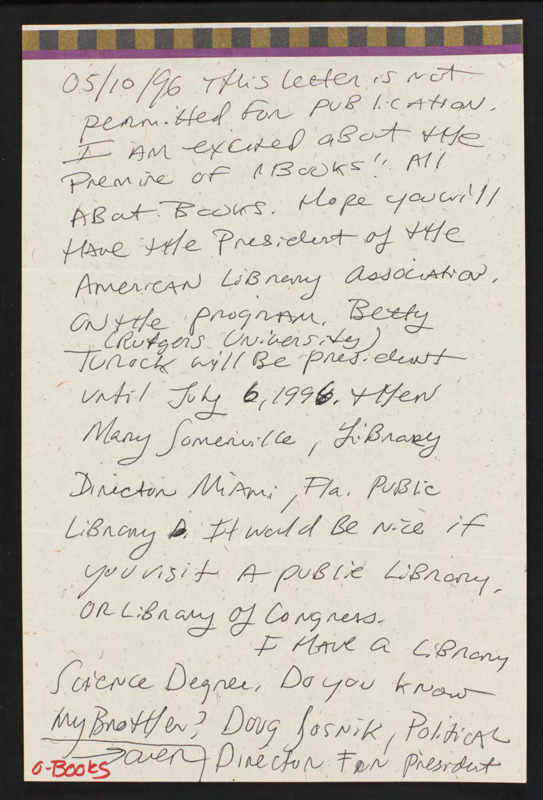 05/10/96 This letter is not
permitted for publication.
I am excited about the
Premire of "Books" All
About Books. Hope you will
Have the President of the
American Library Association.
on the program. Betty
(Rutgers University)
Turock will Be president
until July 6, 1996. then
Mary Somerville, Library
Director Miami, Fla. Public
Library. It would Be nice if
you visit A public Library.
OR Library of Congress.
I Have a Library
Science Degree. Do you know
My Brother? Doug Sosnik, Political
over Director For President
o-Books